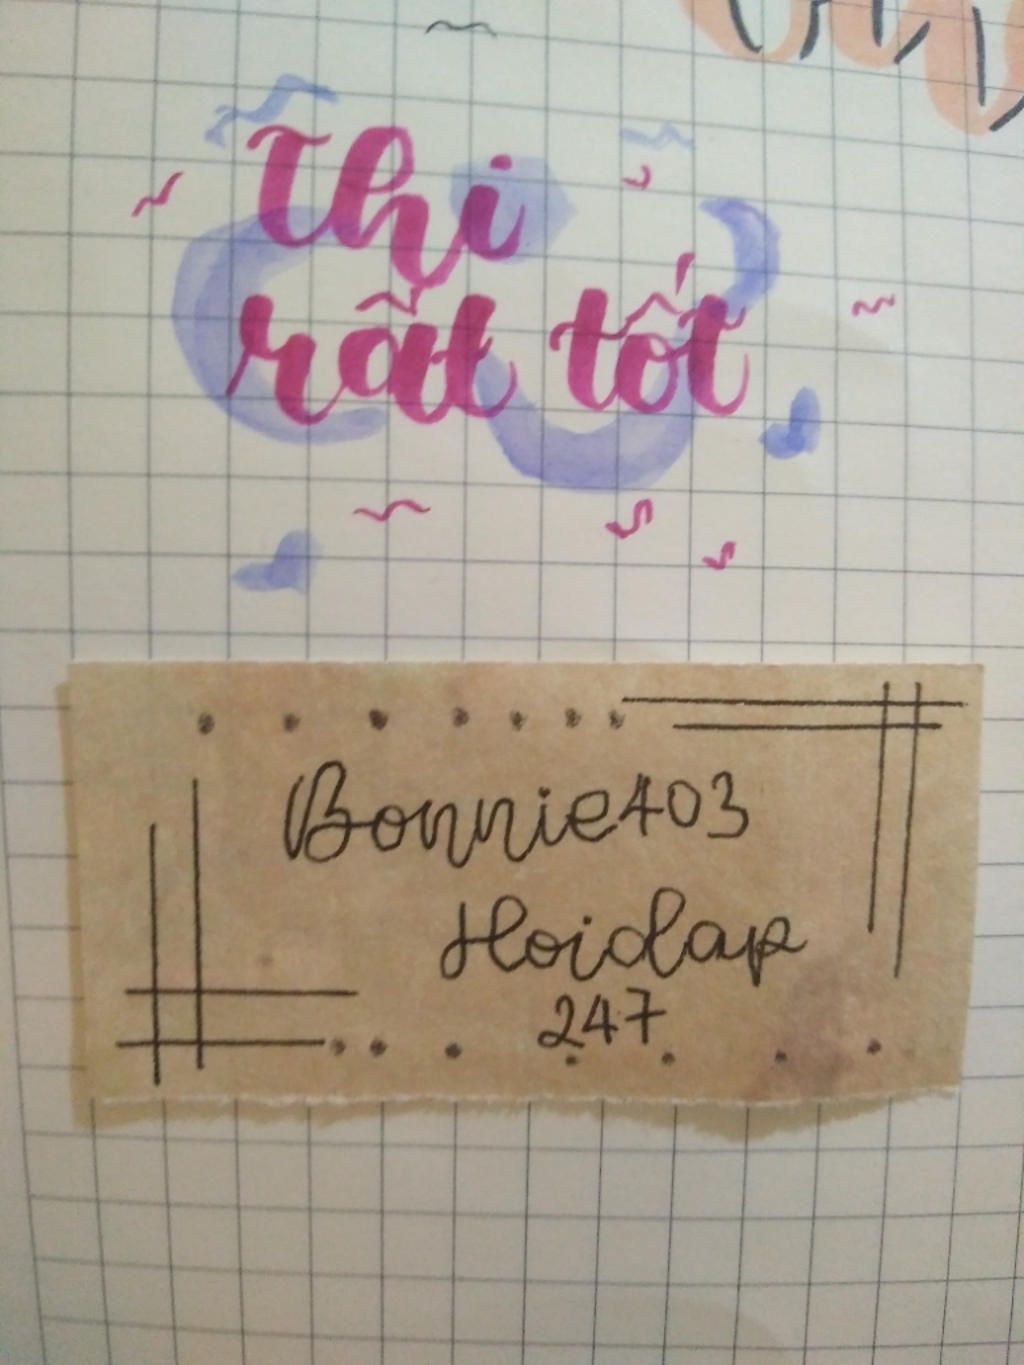 Thi
rất tốt
Bonnie403
Hoidap
247